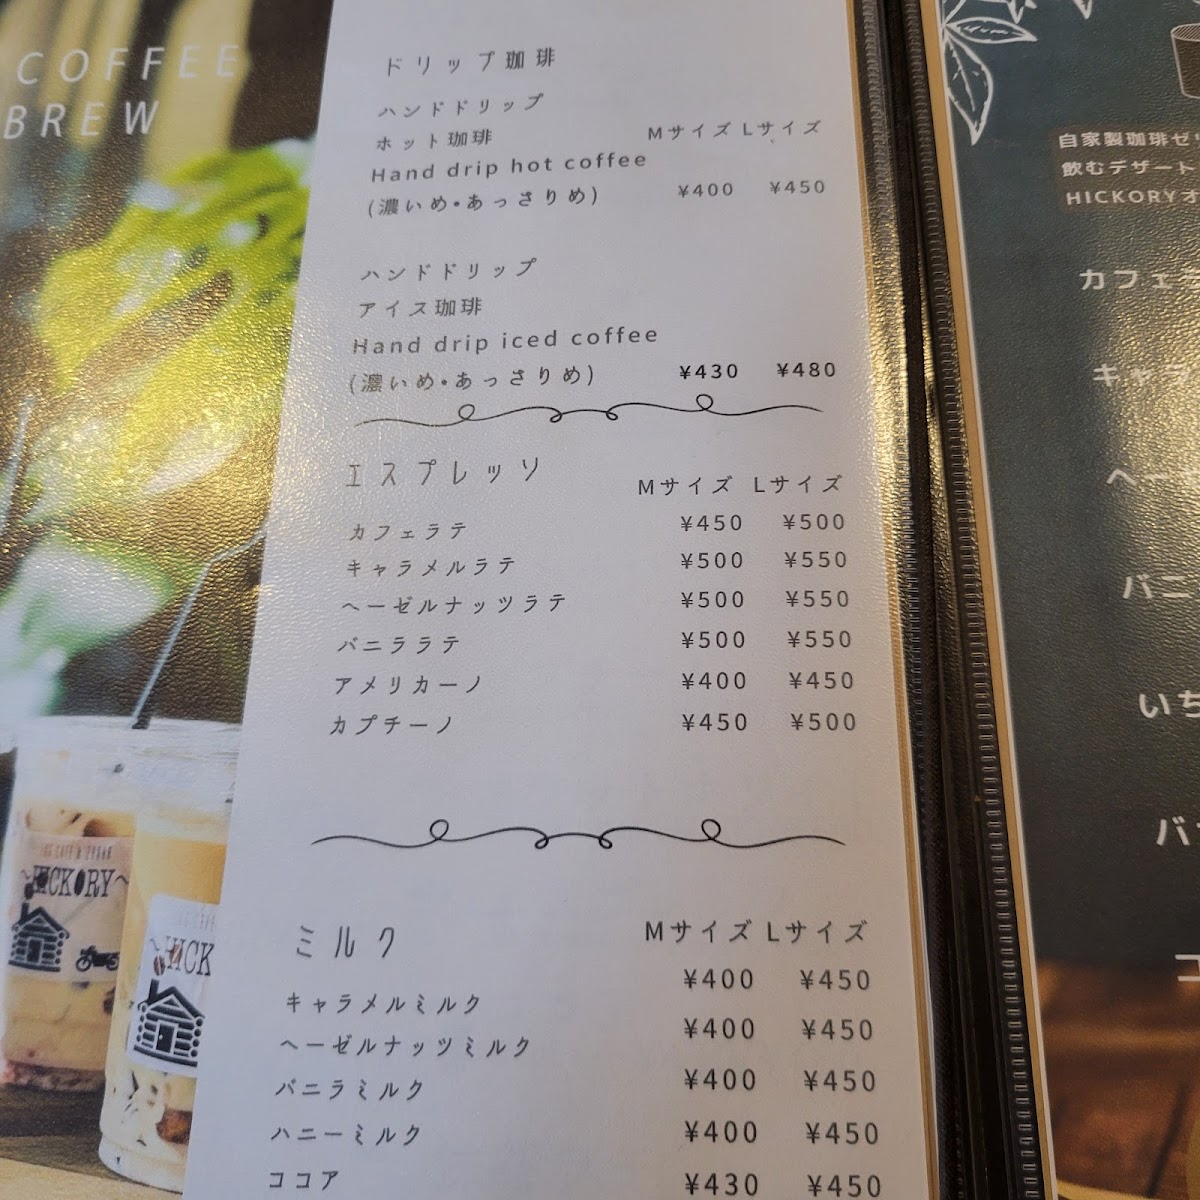 COFFEE
BREW
ドリップ珈琲
ハンドドリップ
ホット珈琲 Mサイズ Lサイズ
Hand drip hot coffee
(濃いめ・あっさりめ) ¥400 ¥450
ハンドドリップ
アイス珈琲
Hand drip iced coffee
(濃いめ・あっさりめ) ¥430 ¥480
エスプレッソ Mサイズ Lサイズ
カフェラテ ¥450 ¥500
キャラメルラテ ¥500 ¥550
ヘーゼルナッツラテ ¥500 ¥550
バニララテ ¥500 ¥550
アメリカーノ ¥400 ¥450
カプチーノ ¥450 ¥500
ミルク Mサイズ Lサイズ
キャラメルミルク ¥400 ¥450
ヘーゼルナッツミルク ¥400 ¥450
バニラミルク ¥400 ¥450
ハニーミルク ¥400 ¥450
ココア ¥430 ¥450
自家製珈琲ゼ
飲むデザート
HICKORYオ
カフェラ
キャラ
ヘー
バニ
いち
バ
コ
HICKORY
HICK